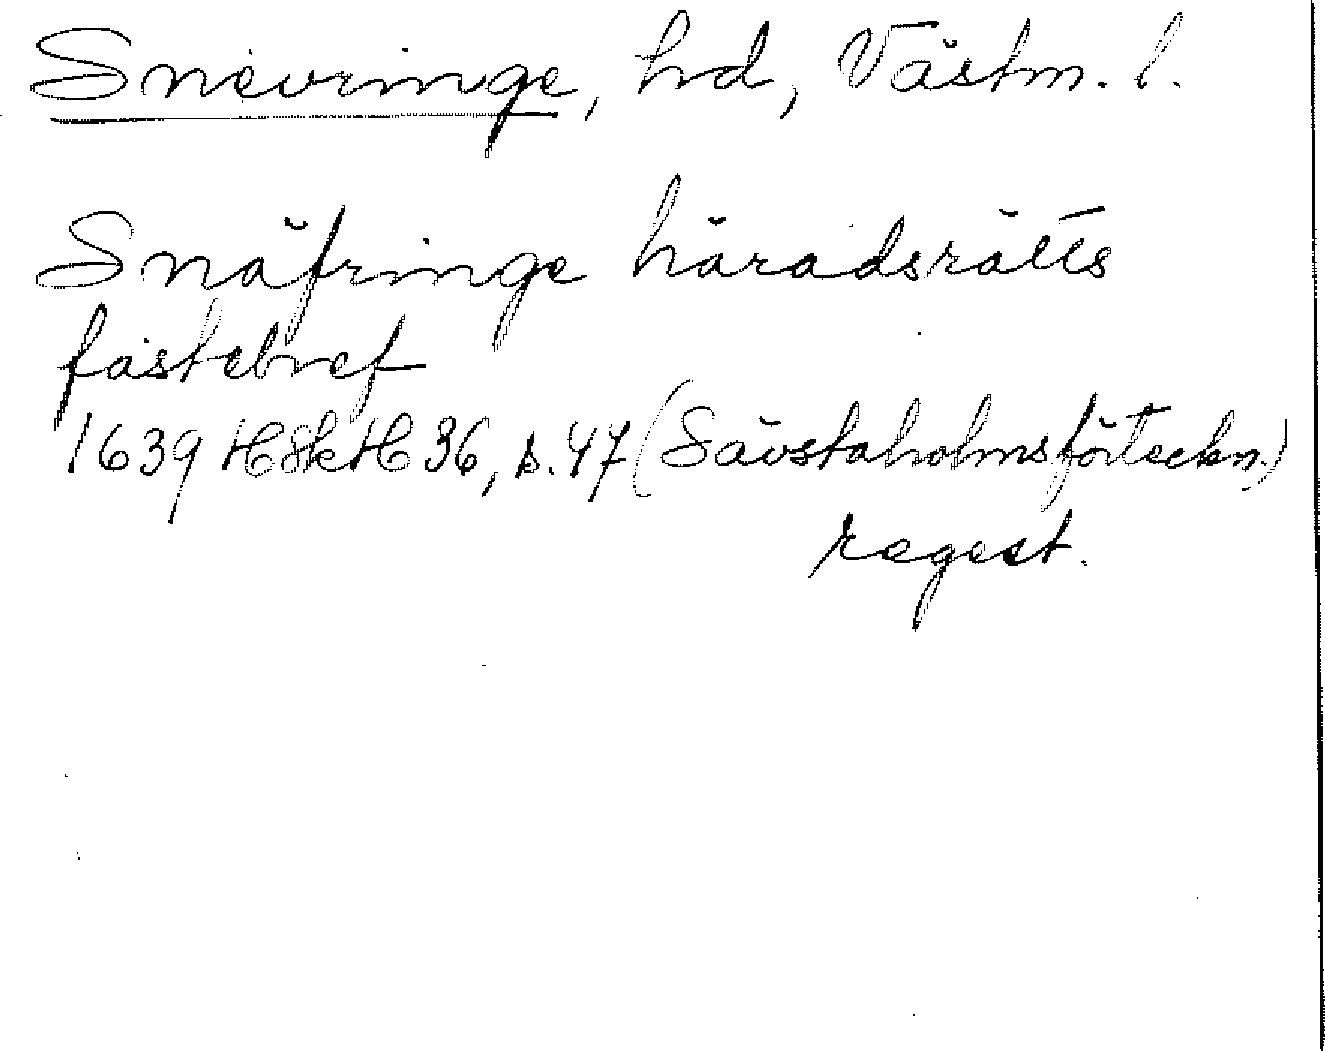 Snevringe, hd, Västm. l.
Snäfringe häradsrätts
fastebref
1639 HSkH 36, s. 47 (Sävstaholmsförteckn.)
regest.